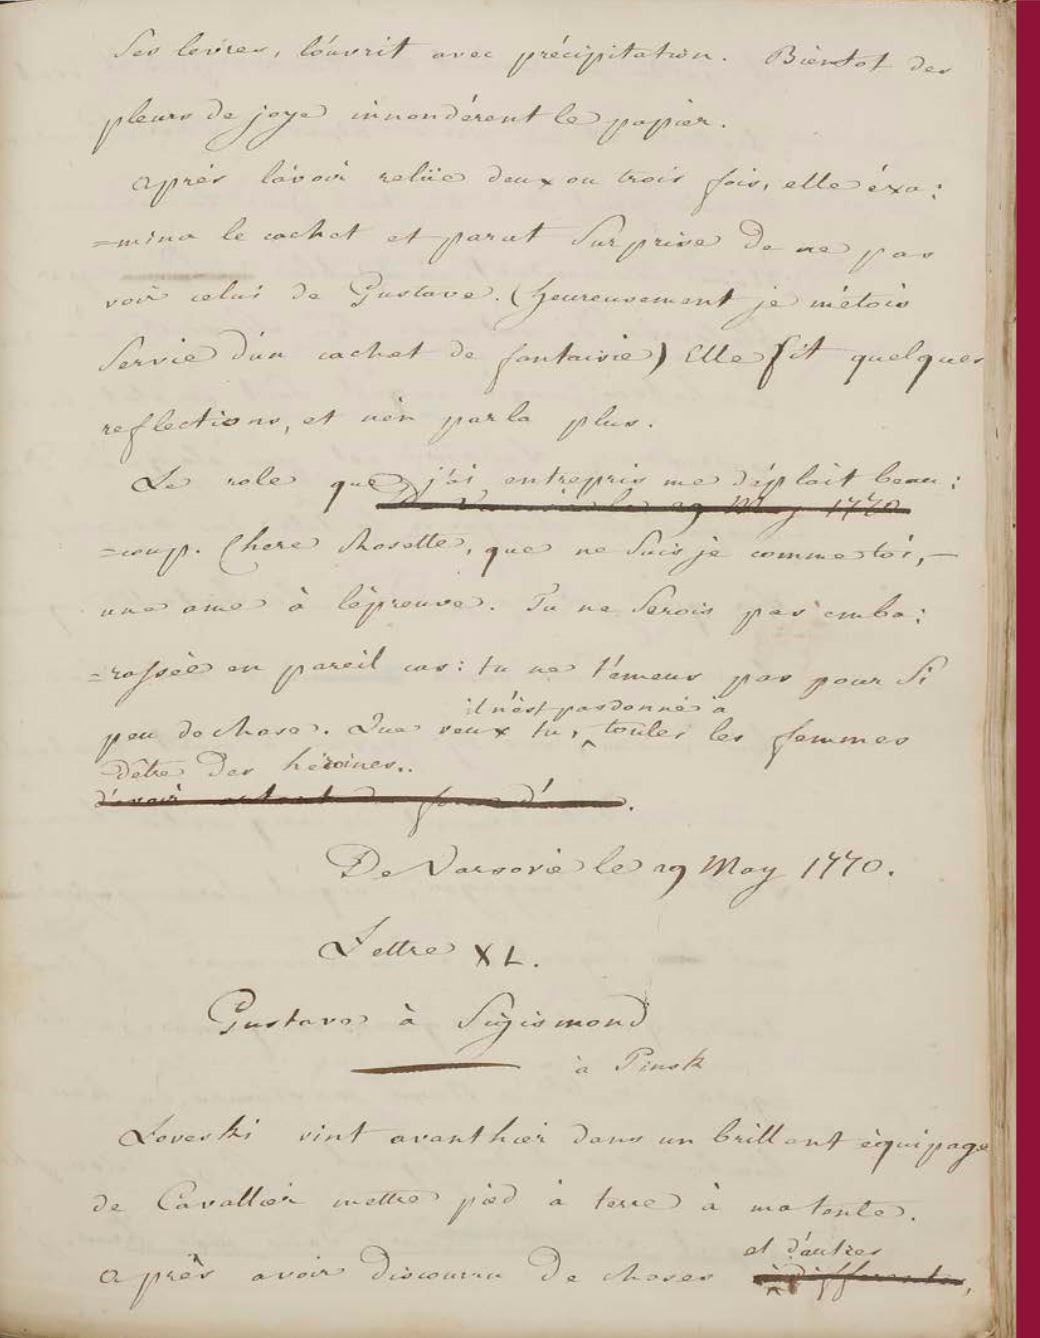 Ses levres, l'ouvrit avec précipitation. Bientot des
pleurs de joye innondérent le papier.
après l'avoir relüe deux ou trois fois, elle éxa:
=mina le cachet et parut Surprise de ne pas
voir celui de Gustave. (heureusement je m'étois
Servie d'un cachet de fantaisie) Elle fit quelques
reflections, et n'en parla plus.
Le role que j'ai entrepris me déplait beau:
De Varsovie le 29 May 1770
=coup. Chere Rosette, que ne Suis je comme toi, —
une ame à l'épreuve. Tu ne Serois pas emba:
=rassée en pareil cas: tu ne t'émeus pas pour Si
il n'est pas donné à
peu de chose. Que veux tu, toutes les femmes
d'être des héroines..
d'avoir autant de force d'ame.
De Varsovie le 29 May 1770.
Lettre XL.
Gustave à Sigismond
à Pinsk
Loveski vint avanthier dans un brillant équipage
de Cavallier mettre pied à terre à ma tente.
et d'autres
Après avoir discouru de choses indifferentes,